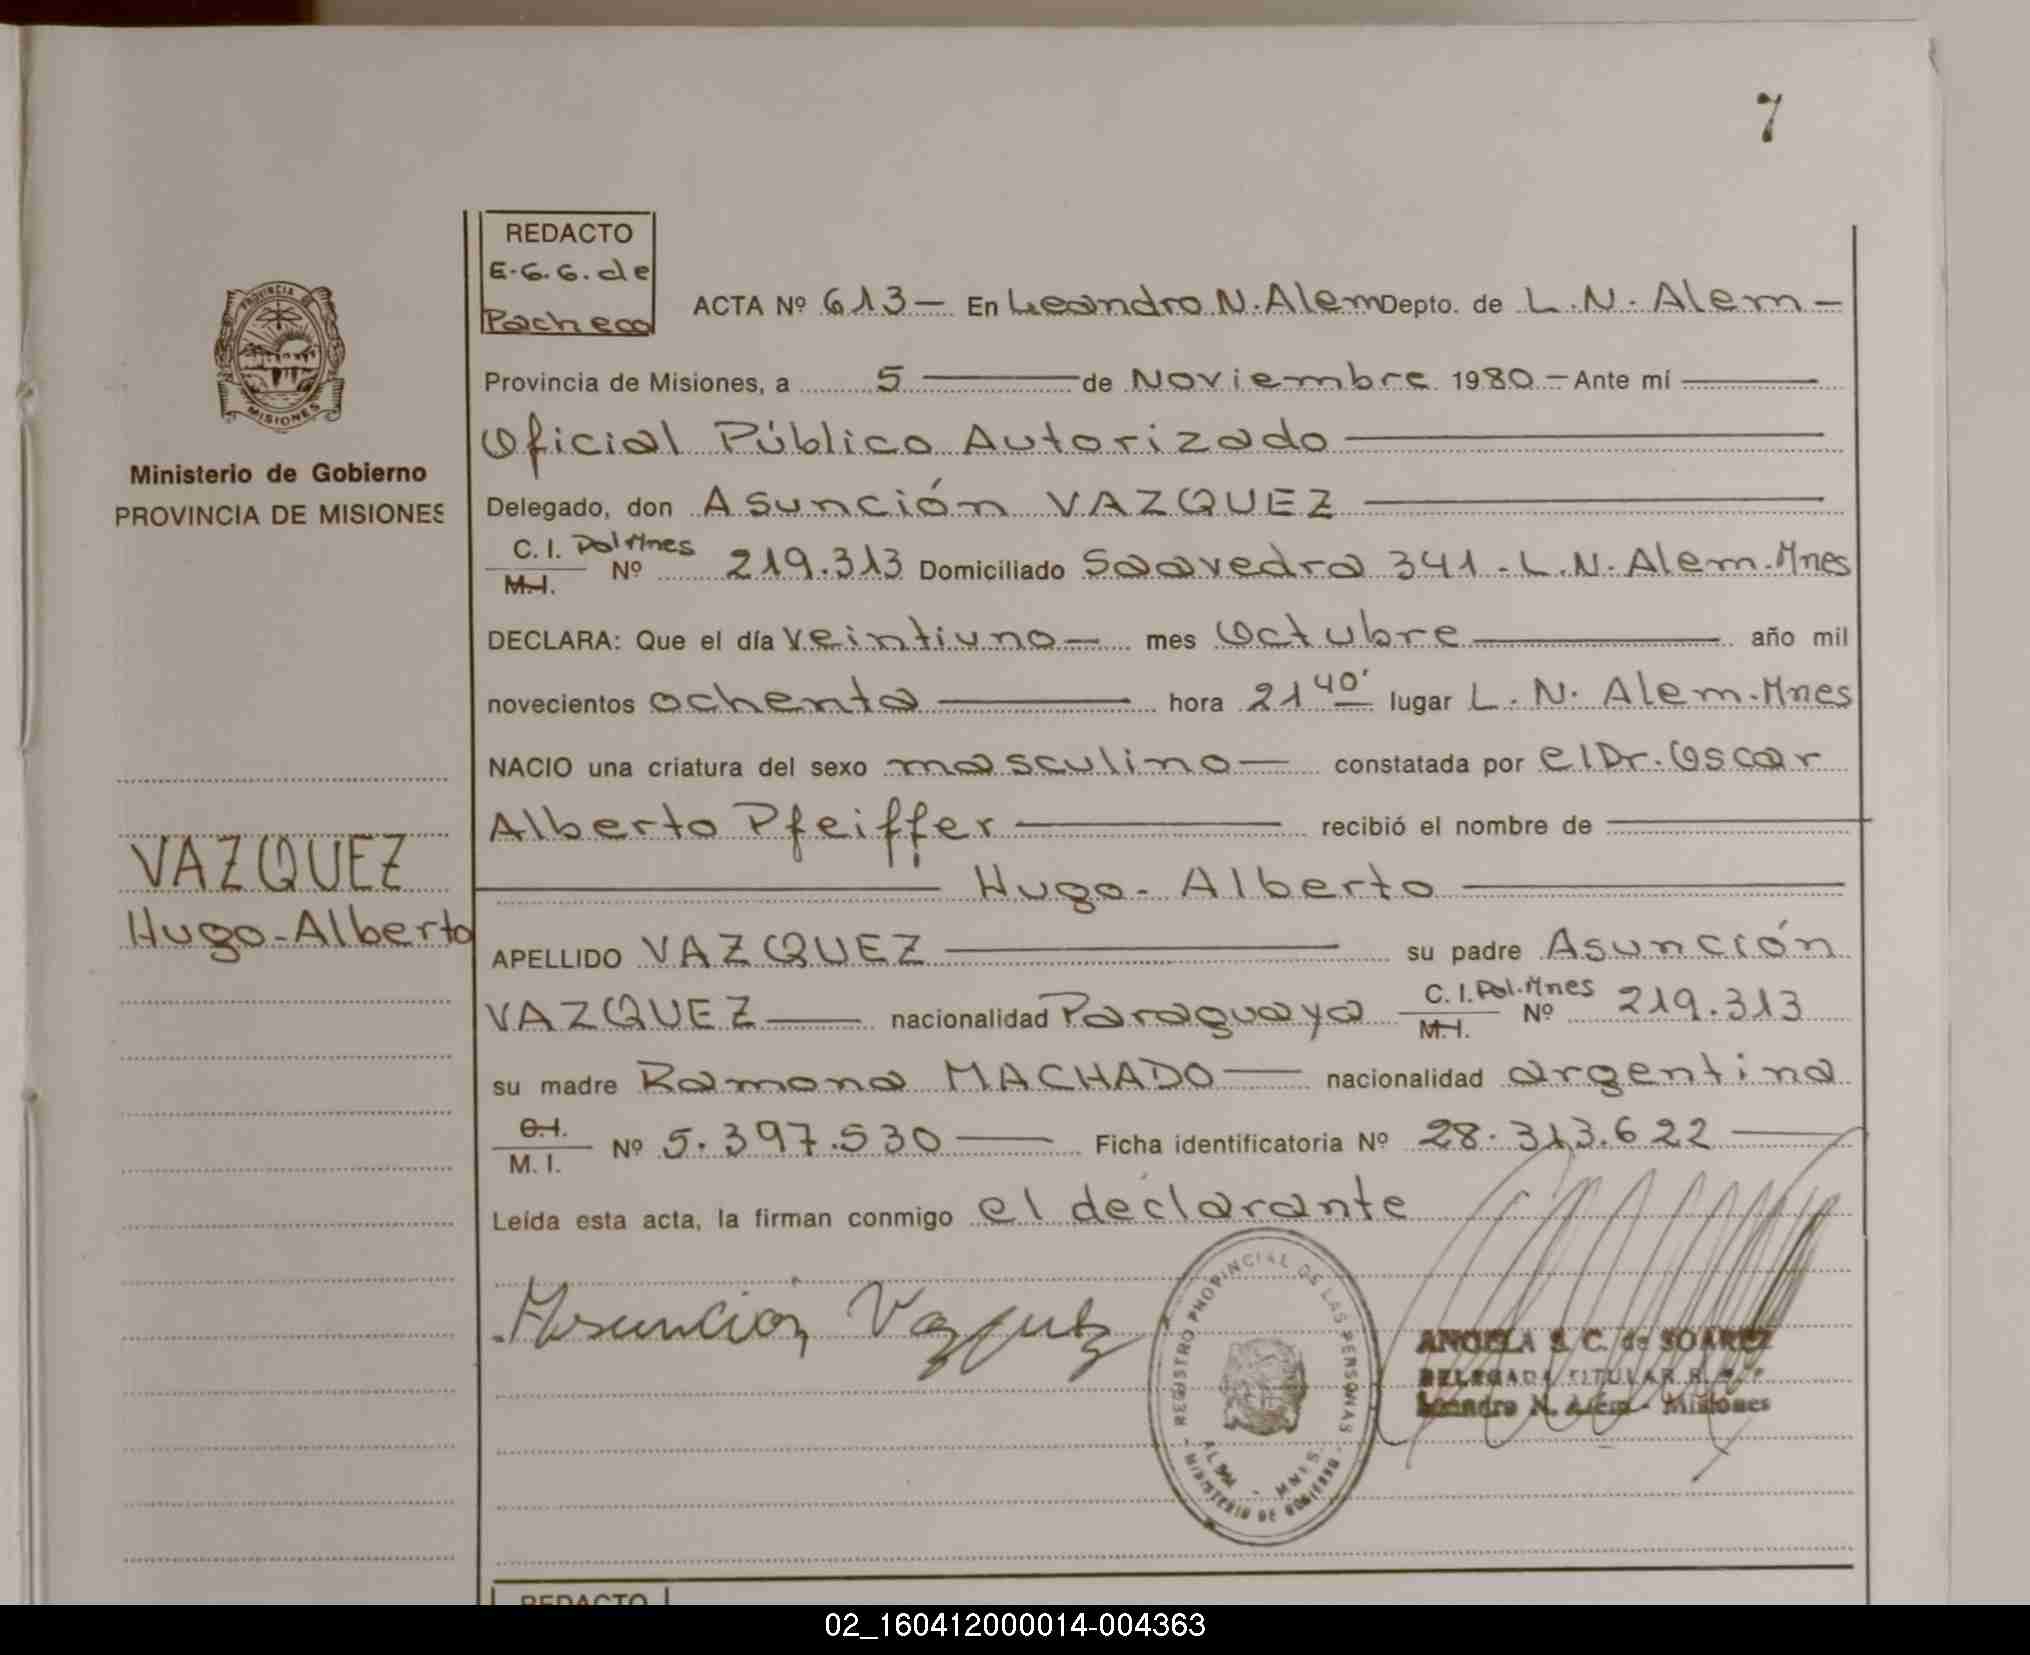 7
REDACTO
E.G.G. de
Pacheco
ACTA Nº 613 — En Leandro N. Alem Depto. de L. N. Alem —
Provincia de Misiones, a 5 — de Noviembre 1980 — Ante mí —
Oficial Público Autorizado —
Delegado, don Asunción VAZQUEZ —
C. I. Pol Mnes
M. I. Nº 219.313 Domiciliado Saavedra 341 - L. N. Alem - Mnes
DECLARA: Que el día veintiuno — mes Octubre — año mil
novecientos ochenta — hora 21 40' lugar L. N. Alem - Mnes
NACIO una criatura del sexo masculino — constatada por el Dr. Oscar
Alberto Pfeiffer — recibió el nombre de —
— Hugo - Alberto —
APELLIDO VAZQUEZ — su padre Asunción
VAZQUEZ — nacionalidad Paraguaya C. I. Pol. Mnes M. I. Nº 219.313
su madre Ramona MACHADO — nacionalidad argentina
C. I.
M. I. Nº 5.397.530 — Ficha identificatoria Nº 28.313.622 —
Leída esta acta, la firman conmigo el declarante
Asuncion Vazquez
PROVINCIA DE
MISIONES
Ministerio de Gobierno
PROVINCIA DE MISIONES
VAZQUEZ
Hugo - Alberto
REGISTRO PROVINCIAL DE LAS PERSONAS
ALEM - MNES
MINISTERIO DE GOBIERNO
ANGELA S. C. de SOAREZ
DELEGADA TITULAR R.
Leandro N. Alem - Misiones
REDACTO
02_160412000014-004363